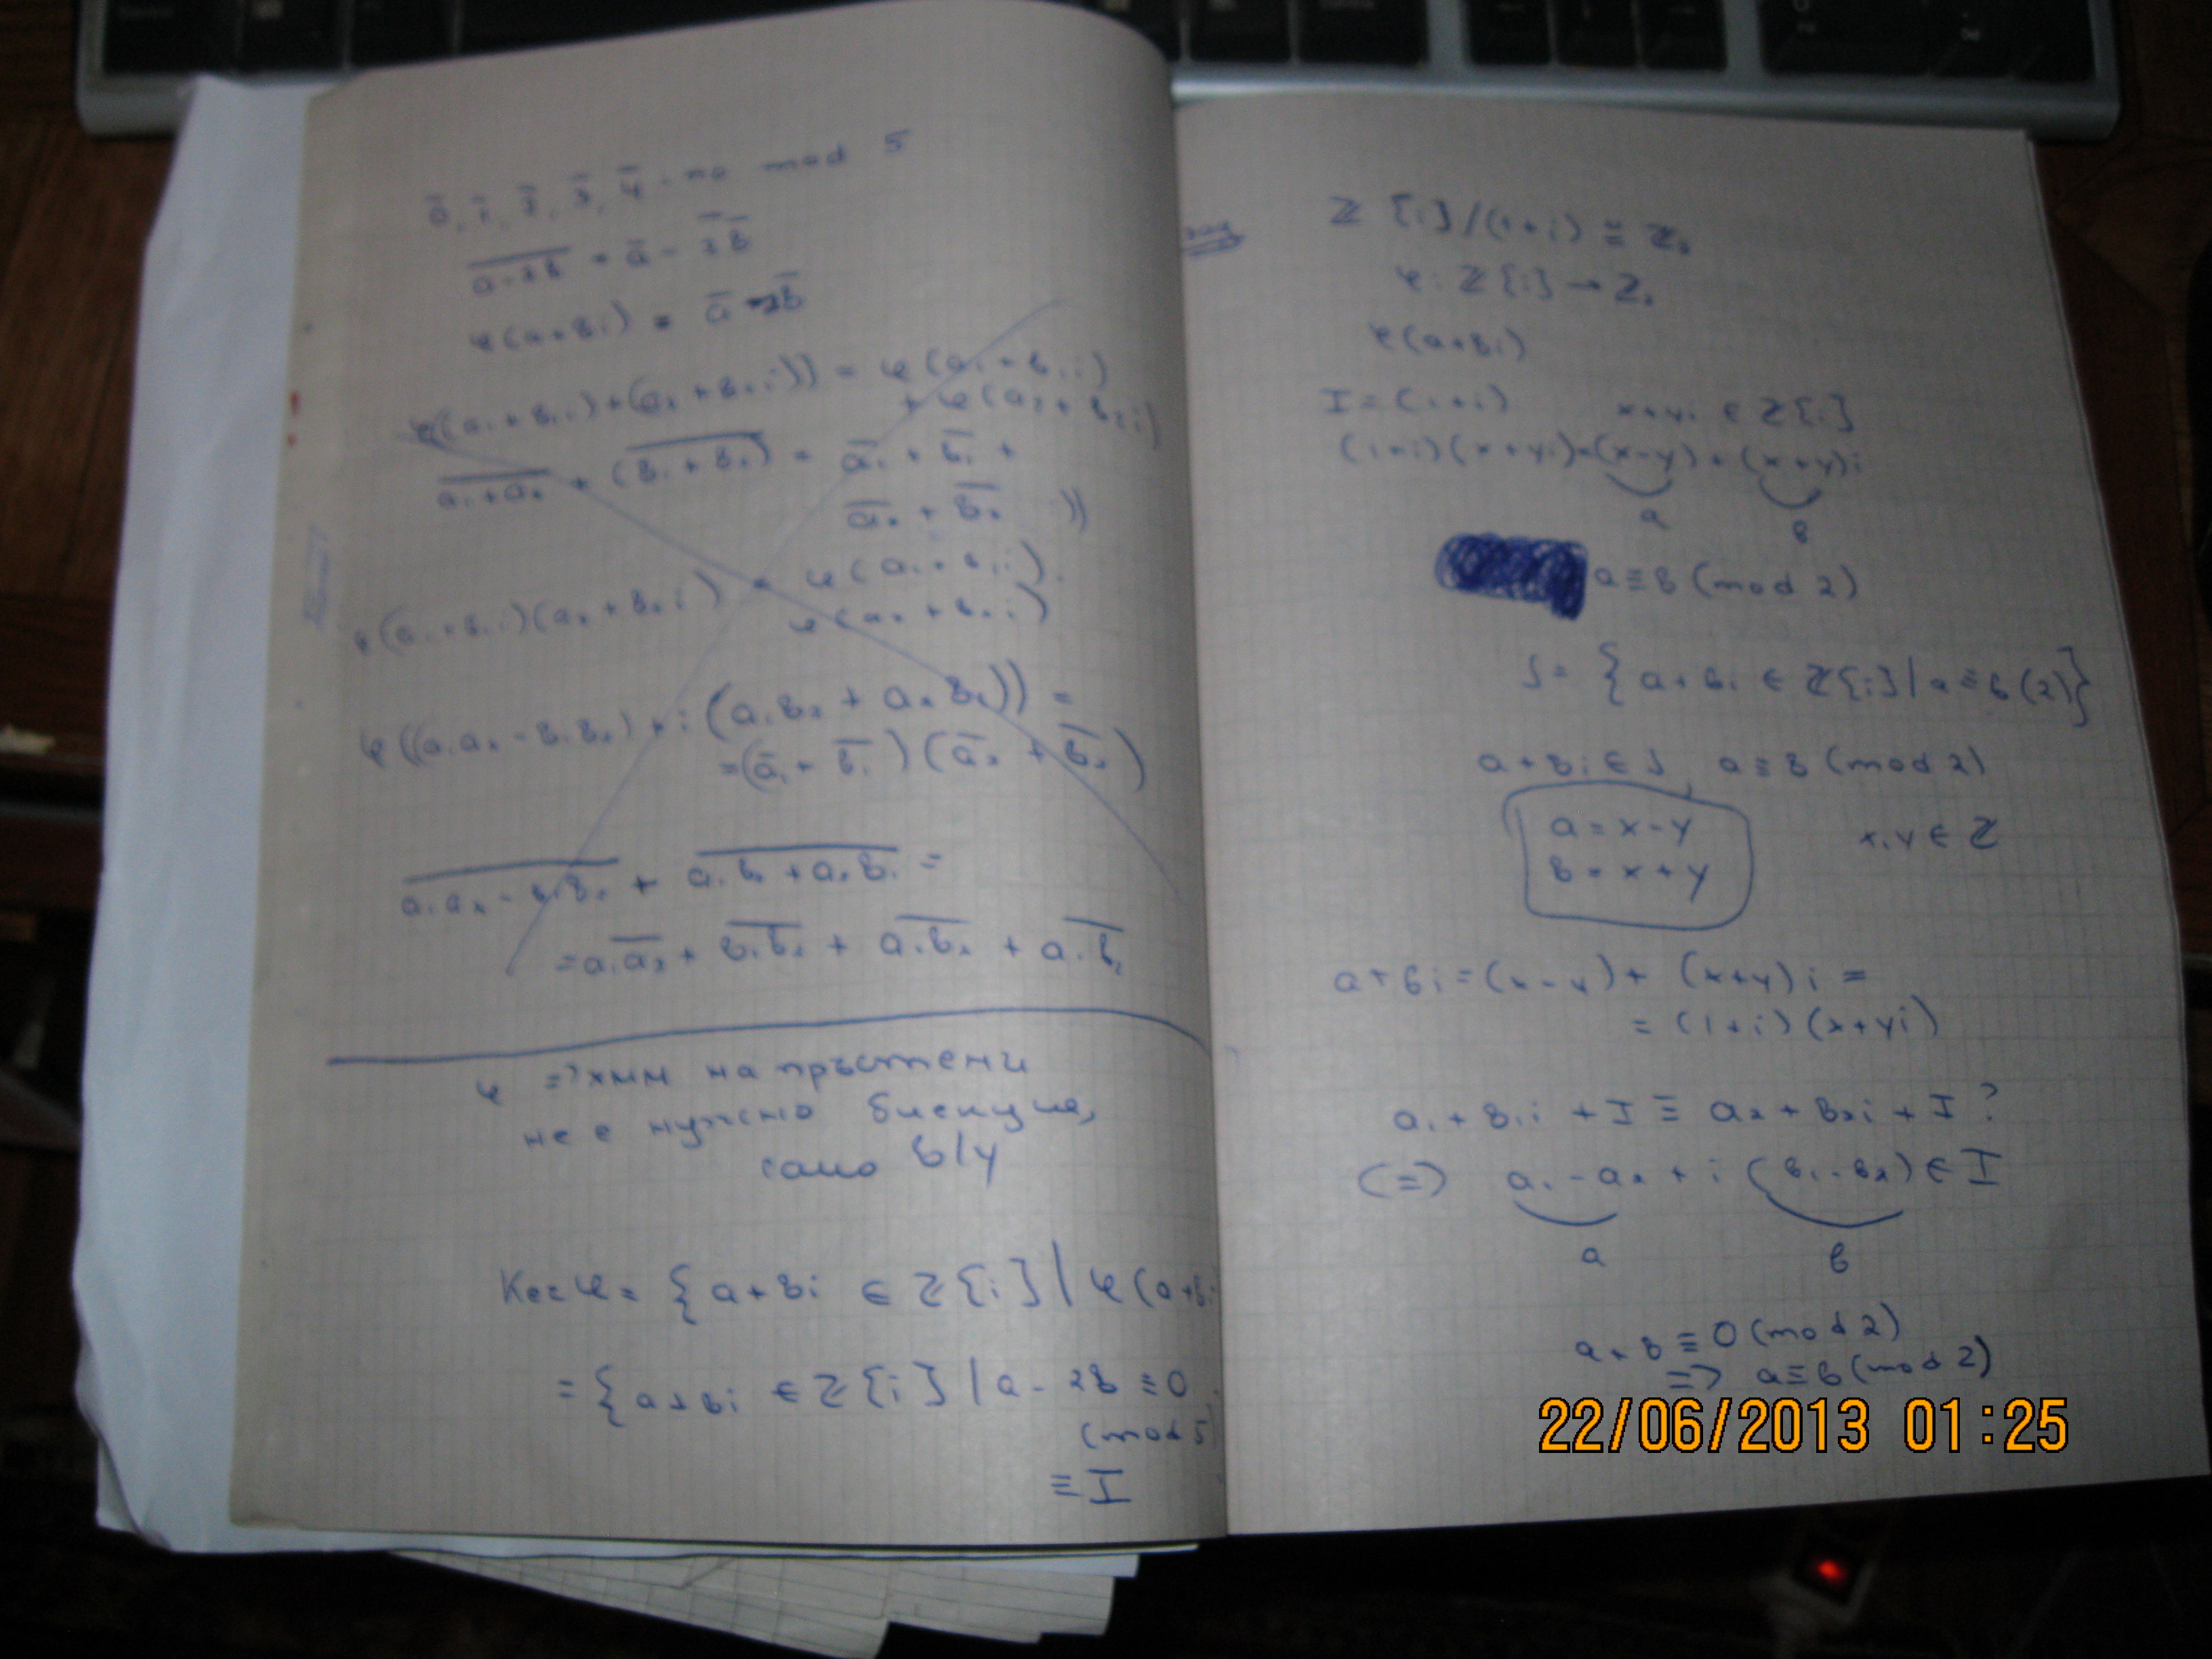 0̄, 1̄, 2̄, 3̄, 4̄ - по mod 5
\overline{a-2b} = ā - \overline{2b}
φ(a+bi) = ā - \overline{2b}
φ((a₁+b₁i)+(a₂+b₂i)) = φ(a₁+b₁i)
+ φ(a₂+b₂i)
\overline{a₁+a₂} + (\overline{b₁+b₂}) = ā₁ + b̄₁ +
ā₂ + b̄₂ ))
φ(a₁+b₁i)(a₂+b₂i) = φ(a₁+b₁i).
φ(a₂+b₂i)
φ((a₁a₂-b₁b₂)+i(a₁b₂+a₂b₁)) =
=(ā₁+b̄₁)(ā₂+b̄₂)
\overline{a₁a₂-b₁b₂} + \overline{a₁b₂+a₂b₁} =
=\overline{a₁a₂} + \overline{b₁b₂} + \overline{a₁b₂} + \overline{a₁b₂}
φ => хмм на пръстени
не е нужно биекция,
само
Ker φ = {a+bi ∈ Z[i] | φ(a+bi
= {a+bi ∈ Z[i] | a-2b ≡ 0
(mod 5)
≡ I
зад
Z[i]/(1+i) ≅ Z₂
φ: Z[i] → Z₂
φ(a+bi)
I=(1+i) x+yi ∈ Z[i]
(1+i)(x+yi)=(x-y)+(x+y)i
a b
a≡b (mod 2)
J= {a+bi ∈ Z[i] | a≡b(2)}
a+bi ∈ J, a≡b (mod 2)
a=x-y x,y ∈ Z
b=x+y
a+bi=(x-y)+(x+y)i =
=(1+i)(x+yi)
a₁+b₁i+I ≡ a₂+b₂i+I ?
(=) a₁-a₂+i(b₁-b₂) ∈ I
a b
a+b ≡ 0 (mod 2)
=> a≡b (mod 2)
22/06/2013 01:25